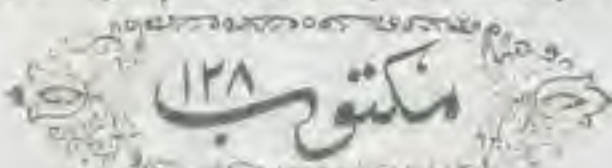 مکتوب ۱۲۸